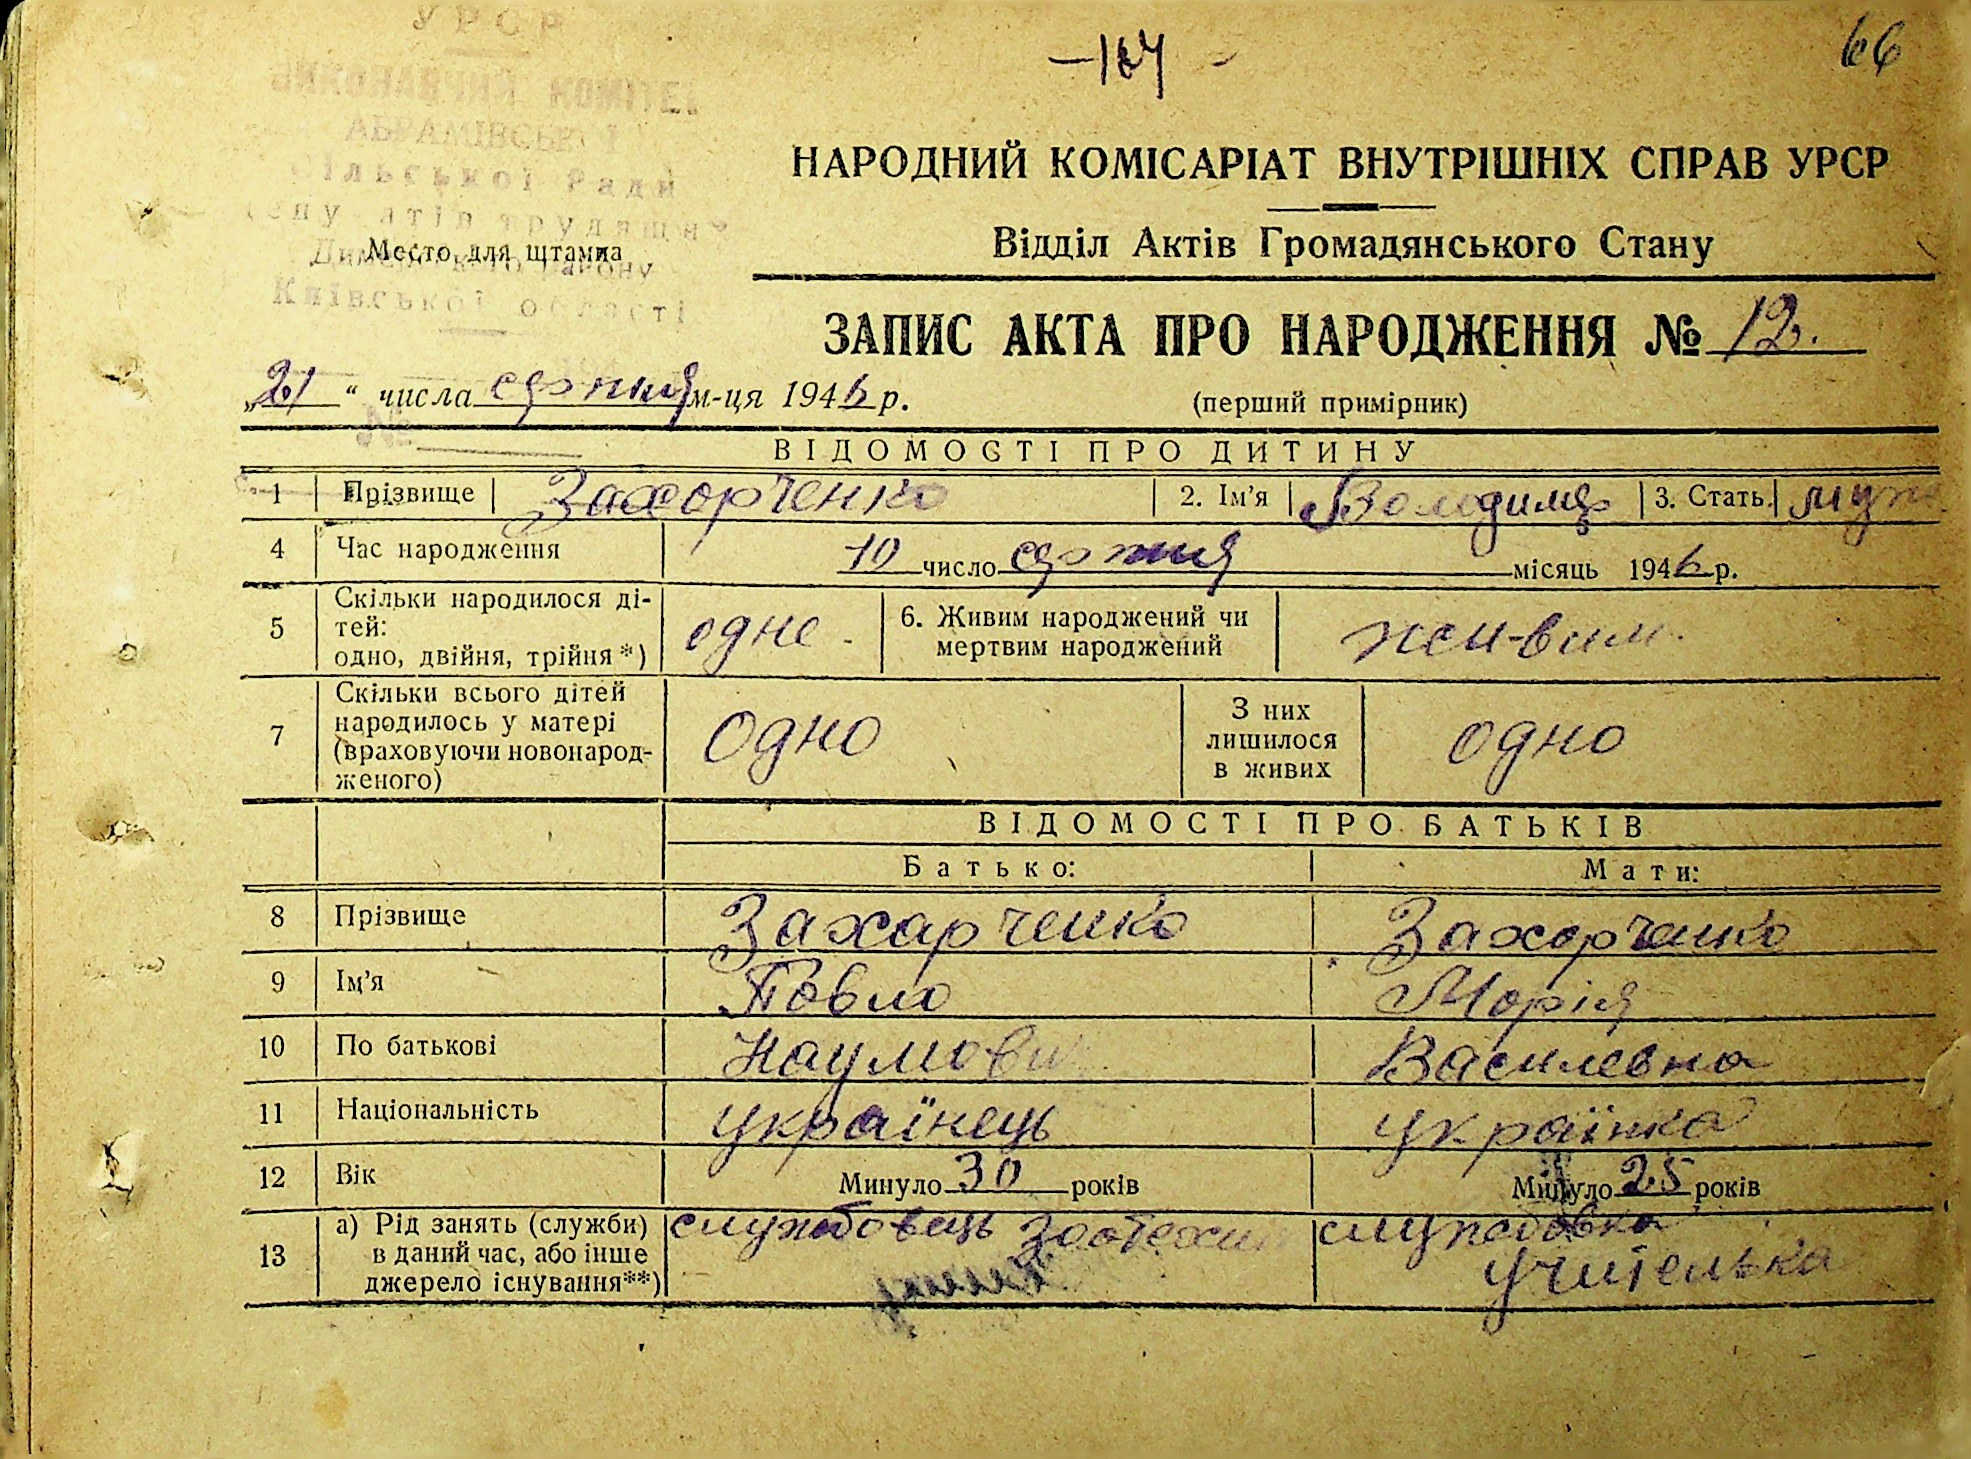 УРСР
ВИКОНАВЧИЙ КОМІТЕТ
АБРАМІВСЬКОЇ
сільської Ради
депутатів трудящих
Димерського району
Київської області
Место для штампа
66
НАРОДНИЙ КОМІСАРІАТ ВНУТРІШНІХ СПРАВ УРСР
Відділ Актів Громадянського Стану
ЗАПИС АКТА ПРО НАРОДЖЕННЯ № 12.
„21“ числа серпня м-ця 1946 р. (перший примірник)
№
ВІДОМОСТІ ПРО ДИТИНУ
1 Прізвище Захарченко 2. Ім’я Володимир 3. Стать. муж
4 Час народження 10 число серпня місяць 1946 р.
5 Скільки народилося ді-
тей:
одно, двійня, трійня*) одне - 6. Живим народжений чи
мертвим народжений живим.
7 Скільки всього дітей
народилось у матері
(враховуючи новонарод-
женого) одно З них
лишилося
в живих одно
ВІДОМОСТІ ПРО БАТЬКІВ
Батько: Мати:
8 Прізвище Захарченко Захарченко
9 Ім’я Павло Марія
10 По батькові Наумович Василевна
11 Національність українець українка
12 Вік Минуло 30 років Минуло 25 років
13 а) Рід занять (служби)
в даний час, або інше
джерело існування**) службовець зоотехнік службовка
учителька